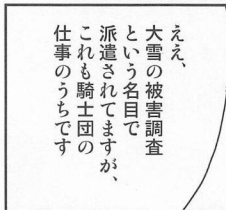 ええ、
大雪の被害調査
という名目で
派遣されてますが、
これも騎士団の
仕事のうちです